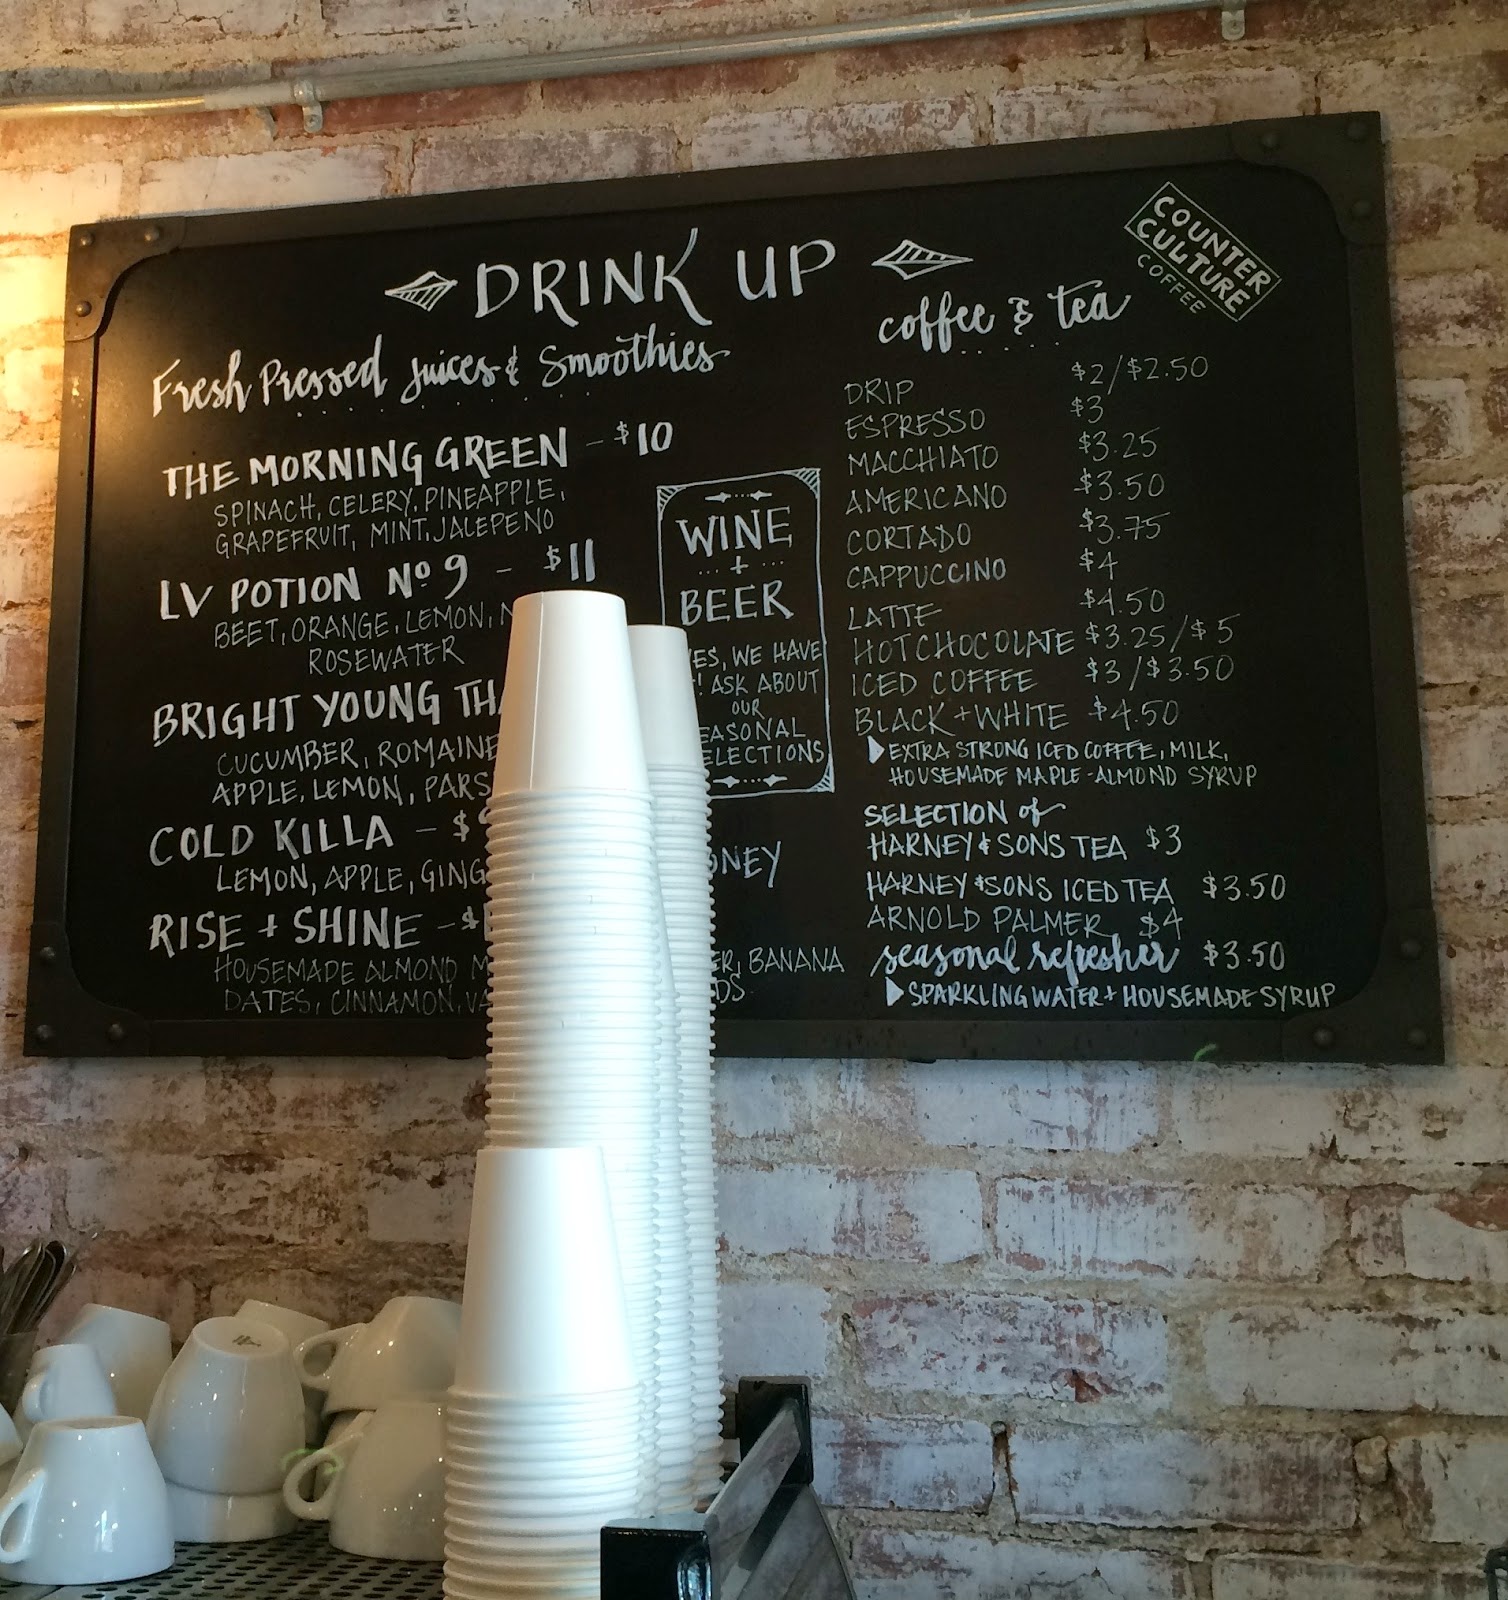 DRINK UP
COUNTER
CULTURE
COFFEE
Fresh Pressed Juices & Smoothies
THE MORNING GREEN - $10
SPINACH, CELERY, PINEAPPLE,
GRAPEFRUIT, MINT, JALEPENO
LV POTION Nº 9 - $11
BEET, ORANGE, LEMON,
ROSEWATER
BRIGHT YOUNG
CUCUMBER, ROMAINE
APPLE, LEMON,
COLD KILLA - $
LEMON, APPLE,
RISE + SHINE - $
HOUSEMADE ALMOND
BANANA
DATES, CINNAMON,
WINE
+
BEER
WE HAVE
! ASK ABOUT
OUR
coffee & tea
DRIP $2/$2.50
ESPRESSO $3
MACCHIATO $3.25
AMERICANO $3.50
CORTADO $3.75
CAPPUCCINO $4
LATTE $4.50
HOT CHOCOLATE $3.25/$5
ICED COFFEE $3/$3.50
BLACK + WHITE $4.50
EXTRA STRONG ICED COFFEE, MILK,
HOUSEMADE MAPLE-ALMOND SYRUP
SELECTION of
HARNEY & SONS TEA $3
HARNEY & SONS ICED TEA $3.50
ARNOLD PALMER $4
seasonal refresher $3.50
SPARKLING WATER + HOUSEMADE SYRUP